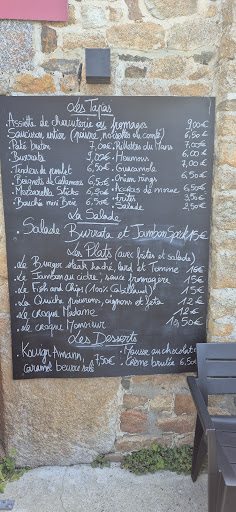 Les Tapas
.Assiette de charcuterie ou fromages 9,00€
.Saucisson entier (nature, noisettes ou comté) 6,50€
.Pâté breton 7,00€ .Rillettes du Mans 7,00€
.Burrata 9,00€ .Houmous 6,00€
.Tenders de poulet 6,50€ .Guacamole 7,00€
.Beignets de Calamars 6,50€ .Onion Rings 6,50€
.Mozzarella Sticks 6,50€ .Accras de morue 6,50€
.Bouchée mini Brie 6,50€ .Frites 3,50€
.Salade 2,50€
La Salade
.Salade Burrata et Jambon Speck 15€
Les Plats (avec frites et salade)
.Le Burger steak haché, lard et Tomme 16€
.Le Jambon au cidre, sauce fromagère 15€
.Le Fish and Chips (100% Cabillaud) 15€
.La Quiche poivrons, oignons et feta 12€
.Le croque Madame 12€
.Le croque Monsieur 10,50€
Les Desserts
.Kouign Amann, 7,50€ .Mousse au chocolat
caramel beurre salé .Crème brulée 6,50€